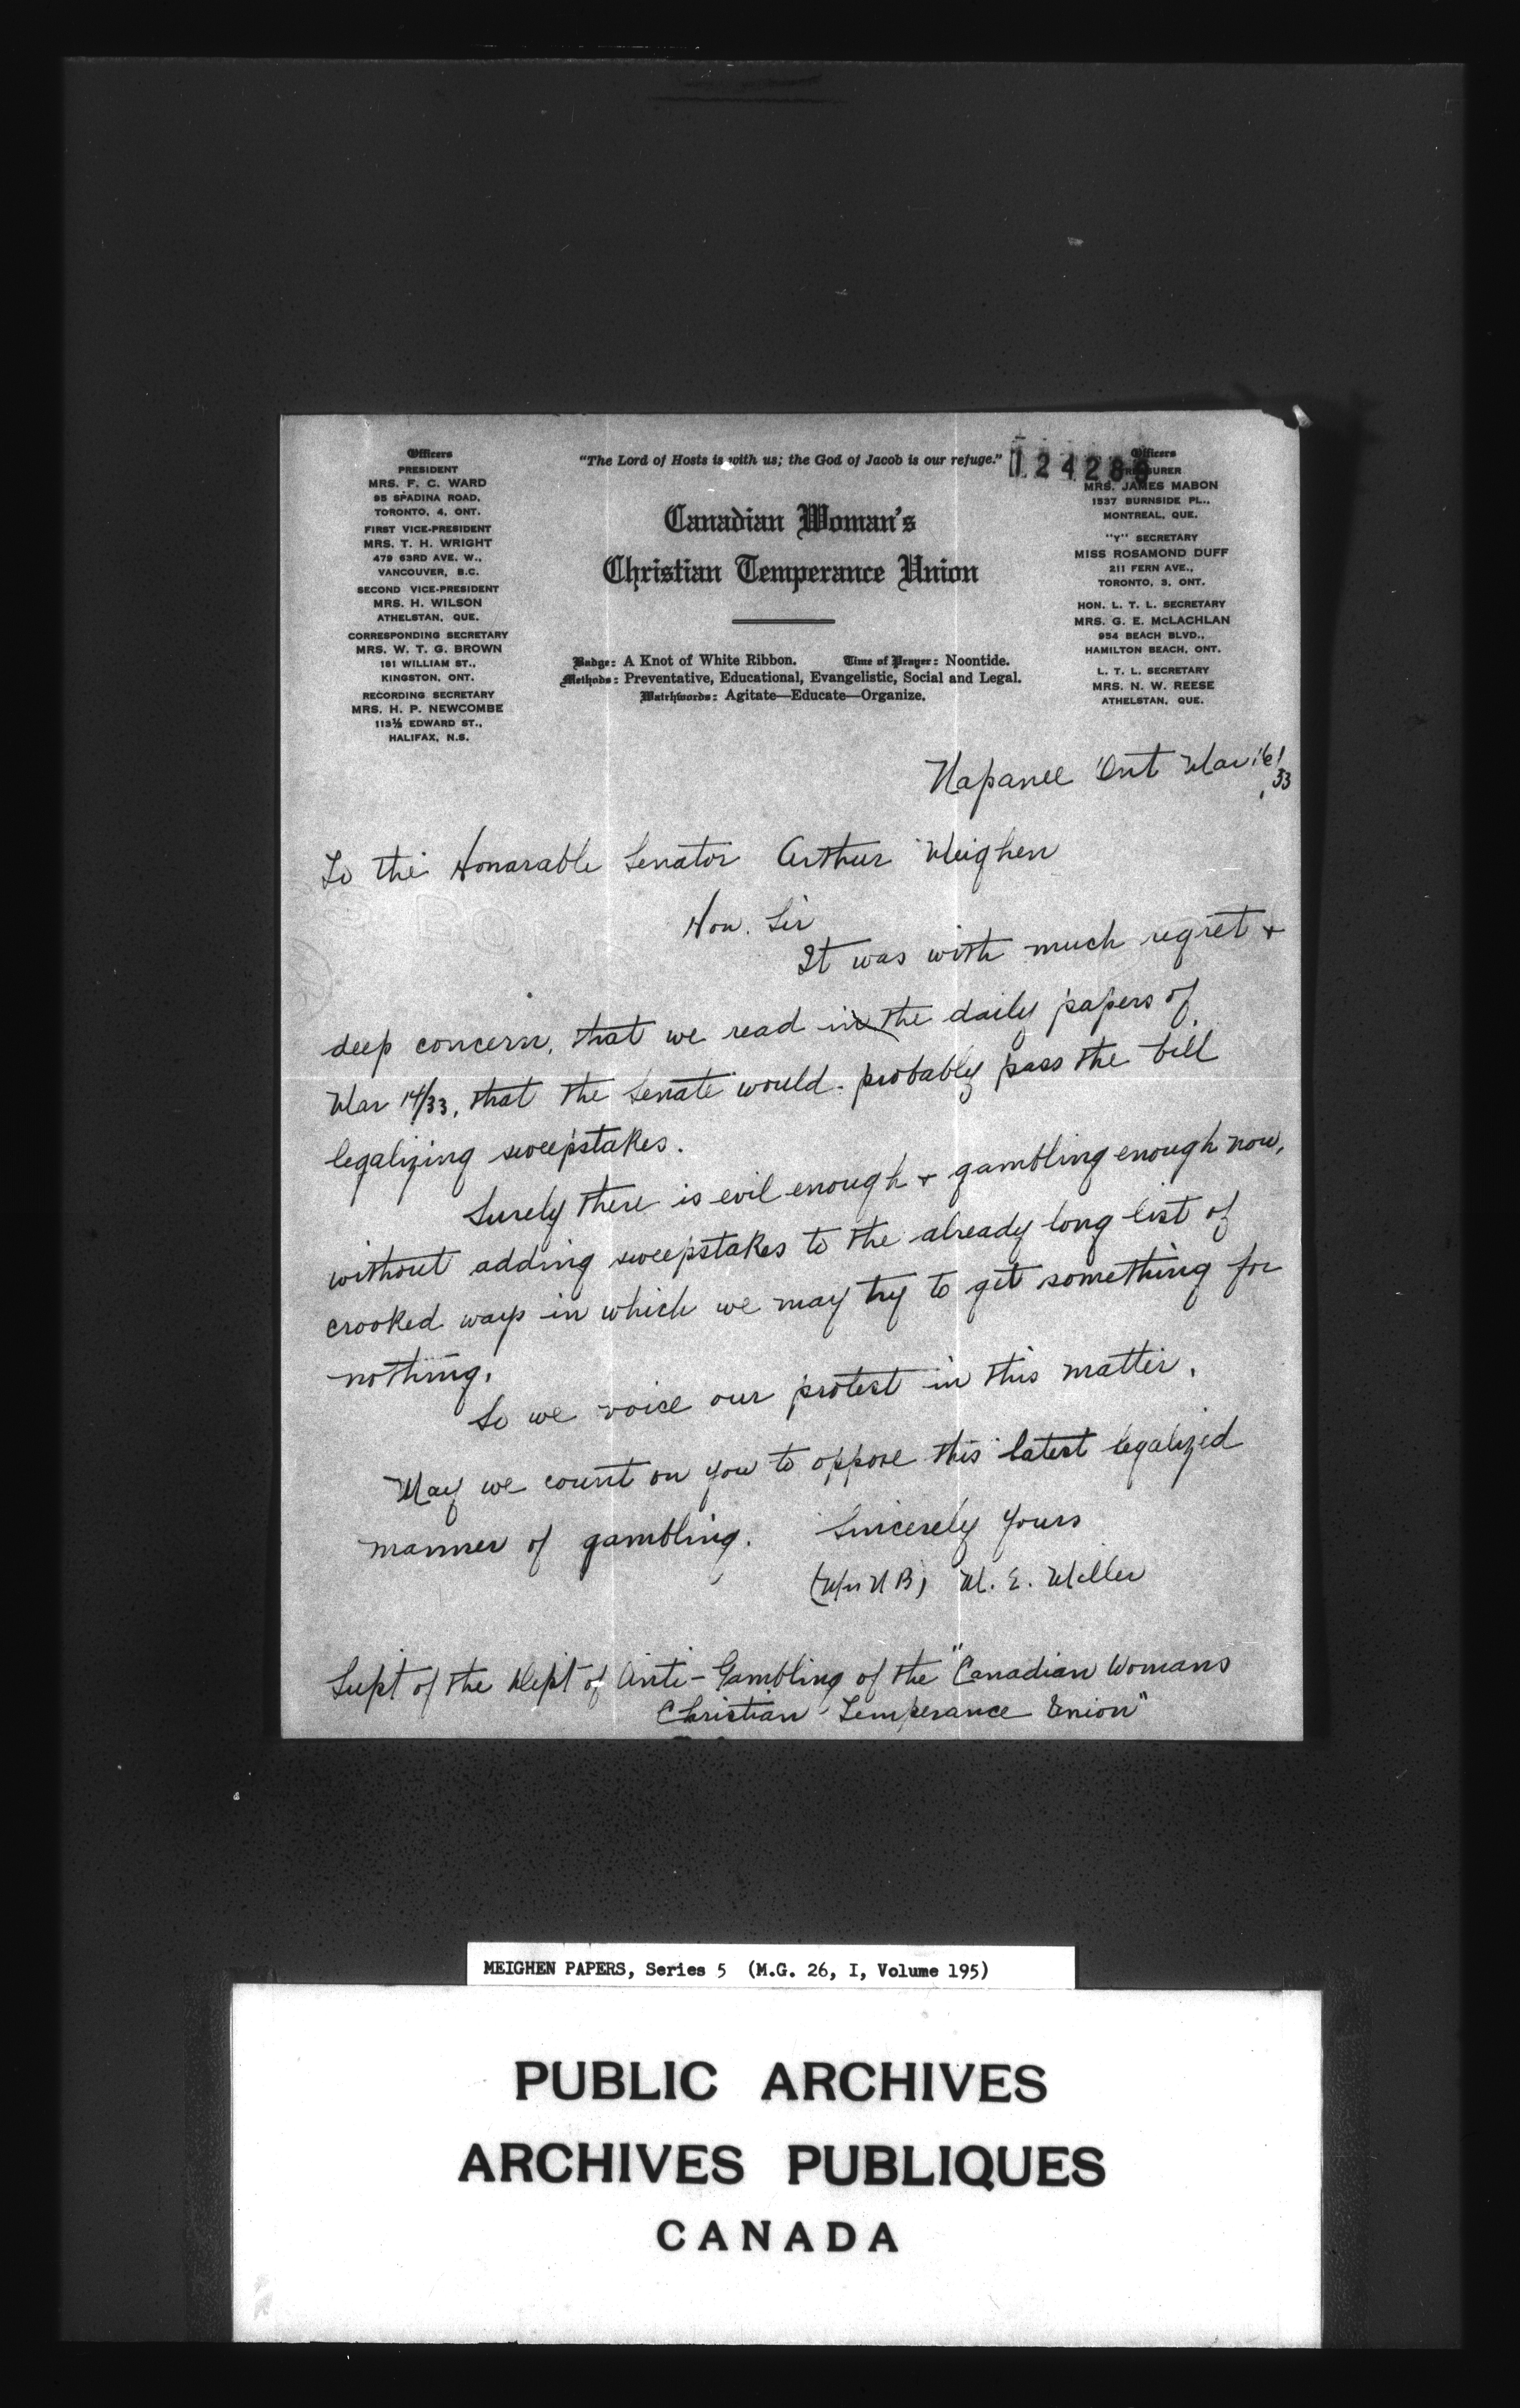 "The Lord of Hosts is with us; the God of Jacob is our refuge."
Officers
PRESIDENT
MRS. F. C. WARD
95 SPADINA ROAD.
TORONTO, 4, ONT.
FIRST VICE-PRESIDENT
MRS. T. H. WRIGHT
479 63RD AVE. W.,
VANCOUVER, B.C.
SECOND VICE-PRESIDENT
MRS. H. WILSON
ATHELSTAN, QUE.
CORRESPONDING SECRETARY
MRS. W. T. G. BROWN
181 WILLIAM ST.,
KINGSTON, ONT.
RECORDING SECRETARY
MRS. H. P. NEWCOMBE
113½ EDWARD ST.,
HALIFAX, N.S.
Canadian Woman's
Christian Temperance Union
Badge: A Knot of White Ribbon. Time of Prayer: Noontide.
Methods: Preventative, Educational, Evangelistic, Social and Legal.
Watchwords: Agitate—Educate—Organize.
Officers
TREASURER
MRS. JAMES MABON
1537 BURNSIDE PL.,
MONTREAL, QUE.
"Y" SECRETARY
MISS ROSAMOND DUFF
211 FERN AVE.,
TORONTO, 3, ONT.
HON. L. T. L. SECRETARY
MRS. G. E. McLACHLAN
954 BEACH BLVD.,
HAMILTON BEACH, ONT.
L. T. L. SECRETARY
MRS. N. W. REESE
ATHELSTAN, QUE.
Napanee Ont Mar 16/33
To the Honarable Senator Arthur Meighen
Hon. Sir
It was with much regret &
deep concern, that we read in the daily papers of
Mar 14/33, that the Senate would probably pass the bill
legalizing sweepstakes.
Surely there is evil enough & gambling enough now,
without adding sweepstakes to the already long list of
crooked ways in which we may try to get something for
nothing.
So we voice our protest in this matter.
May we count on you to oppose this latest legalized
manner of gambling. Sincerely Yours
(Mrs N B) M. E. Miller
Supt of the Dept of Anti-Gambling of the "Canadian Womans
Christian Temperance Union"
MEIGHEN PAPERS, Series 5 (M.G. 26, I, Volume 195)
PUBLIC ARCHIVES
ARCHIVES PUBLIQUES
CANADA